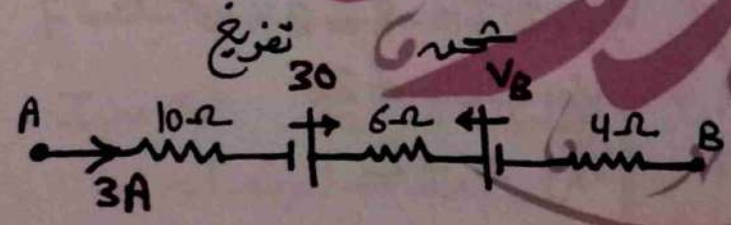 تفريغ شحن
30 V_B
A 10Ω 6Ω 4Ω B
3A